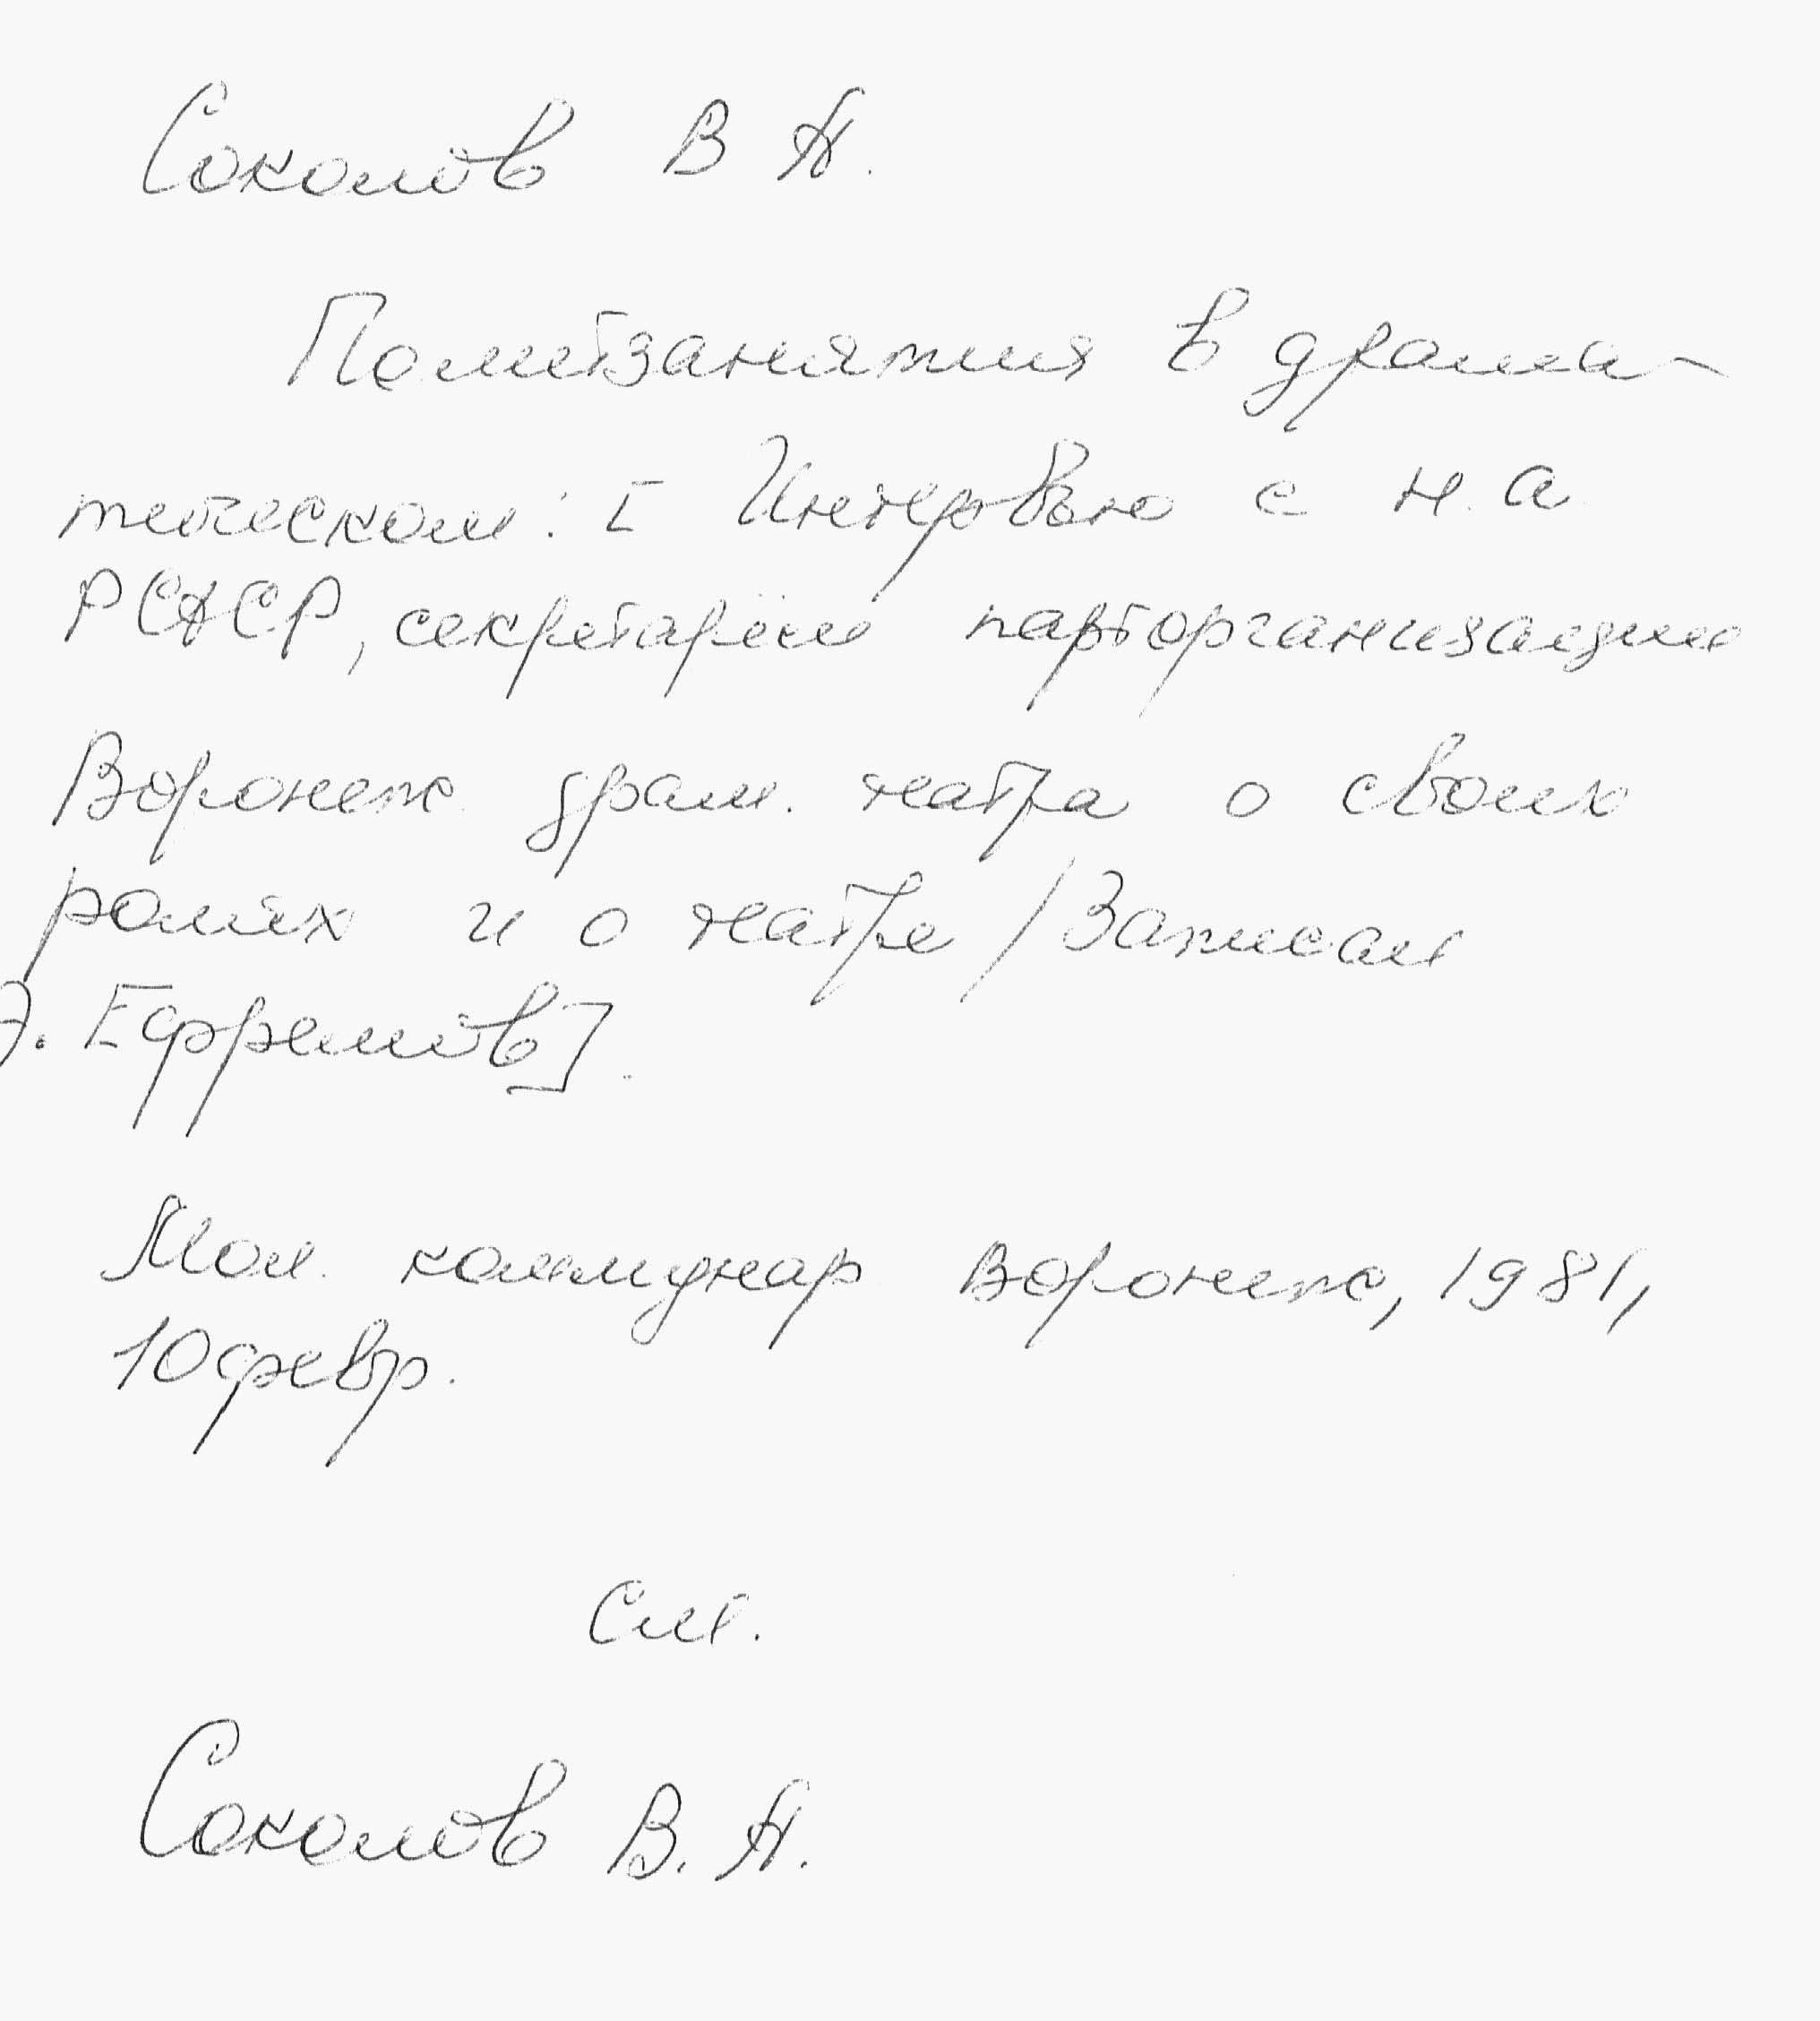 Соколов В А.
Политзанятия в драма-
тическом: [ Интервью с н. а
РСФСР, секретарём парторганизации
Воронеж. драм. театра о своих
ролях и о театре / Записал
Э. Ефремов].
Мол. коммунар Воронеж, 1981,
10 февр.
См.
Соколов В. А.